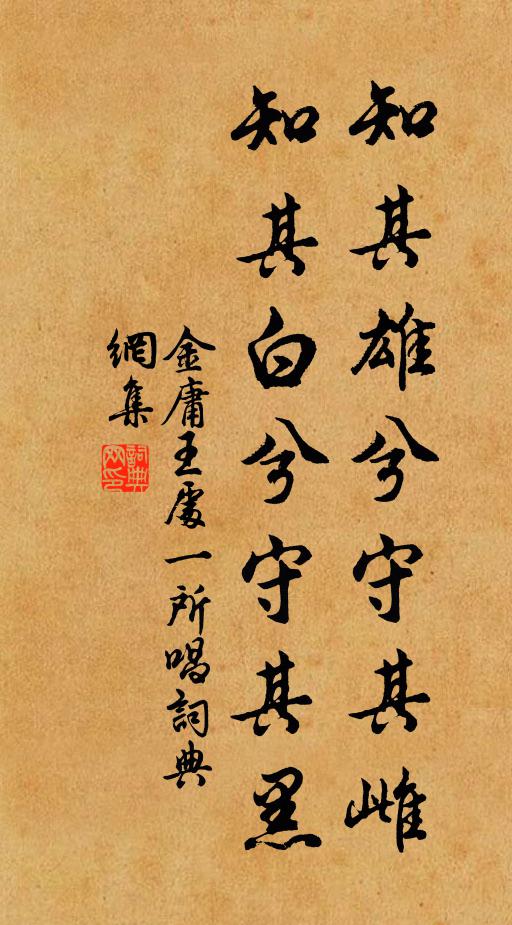 知其雄兮守其雌
知其白兮守其黑
金庸王處一所唱詞典
網集
詞典
网印